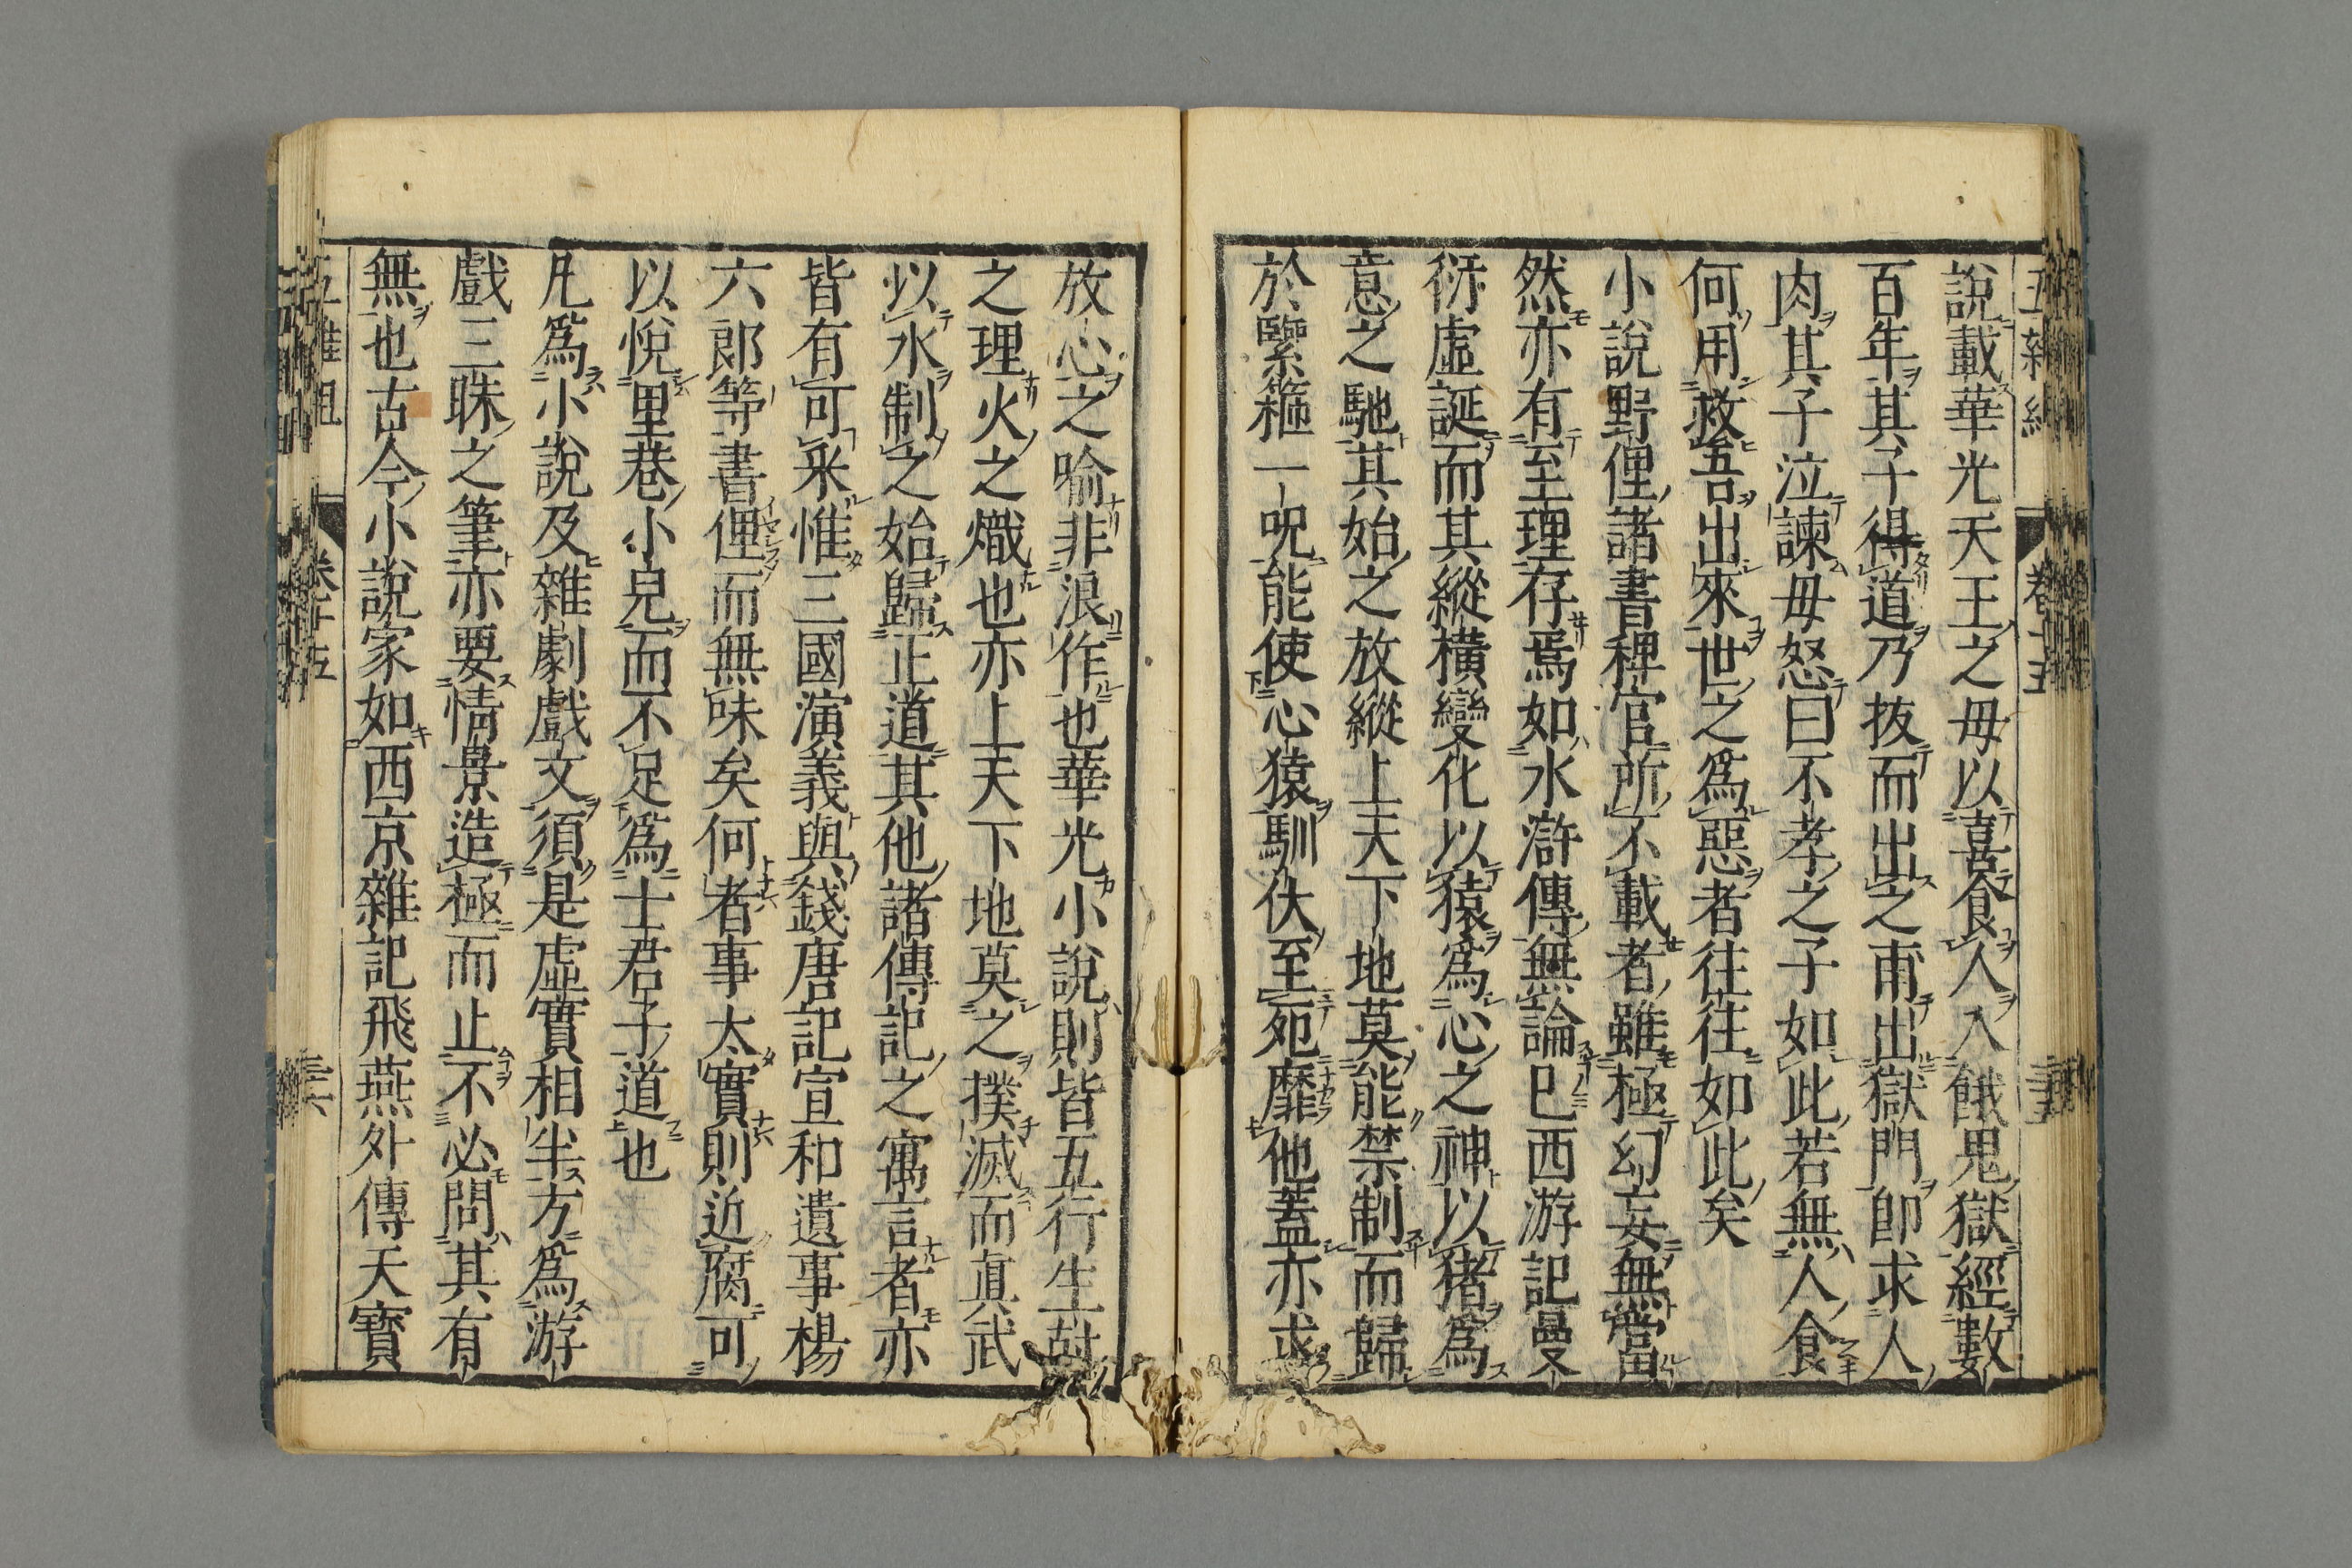 五雜組 卷十五
說載華光天王之母以喜食人入餓鬼獄經數
百年其子得道乃拔而出之甫出獄門卽求人
肉其子泣諫母怒曰不孝之子如此若無人食
何用救吾出來世之爲惡者往往如此矣
小說野俚諸書稗官所不載者雖極幻妄無當
然亦有至理存焉如水滸傳無論已西游記曼
衍虛誕而其縱橫變化以猿爲心之神以猪爲
意之馳其始之放縱上天下地莫能禁制而歸
於緊箍一呪能使心猿馴伏至死靡他蓋亦求
放心之喻非浪作也華光小說則皆五行生尅
之理火之熾也亦上天下地莫之撲滅而眞武
以水制之始歸正道其他諸傳記之寓言者亦
皆有可采惟三國演義與錢唐記宣和遺事楊
六郞等書俚而無味矣何者事太實則近腐可
以悅里巷小兒而不足爲士君子道也
凡爲小說及雜劇戲文須是虛實相半方爲游
戲三昧之筆亦要情景造極而止不必問其有
無也古今小說家如西京雜記飛燕外傳天寶
五雜組 卷十五 三六